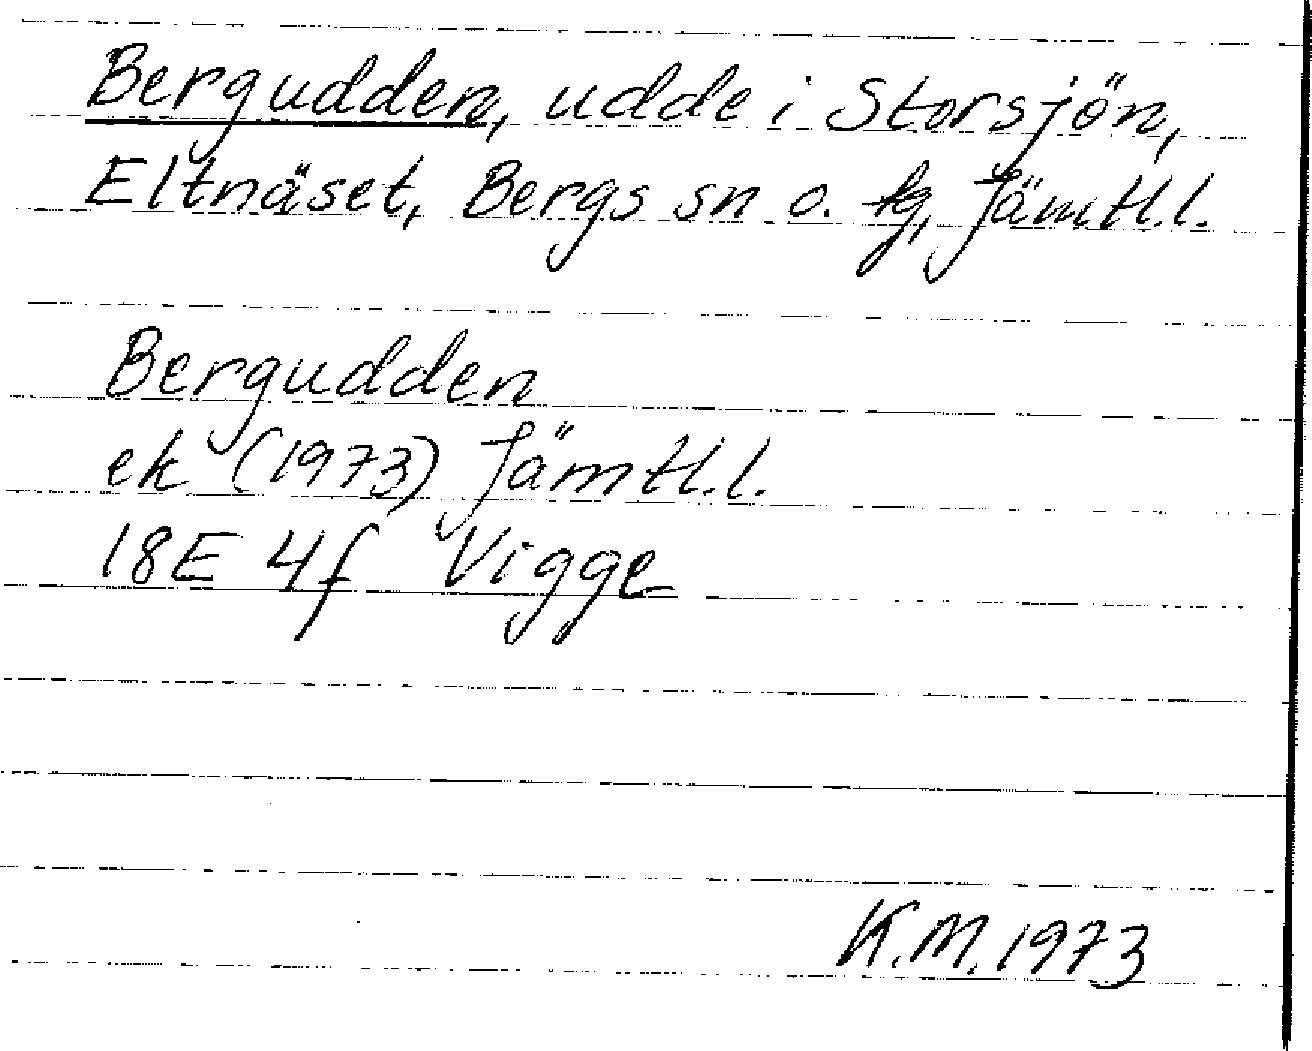 Bergudden, udde i Storsjön,
Eltnäset, Bergs sn o. kg, Jämtl.l.
Bergudden
ek (1973) Jämtl.l.
18E 4f Vigge
K.M. 1973